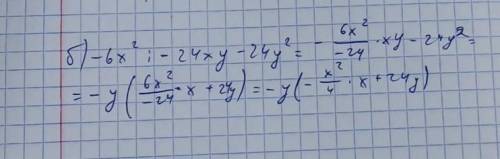 б) -6x² : -24xy - 24y² = - 6x²/-24 · xy - 24y² =
= -y (6x²/-24 · x + 24y) = -y (- x²/4 · x + 24y)